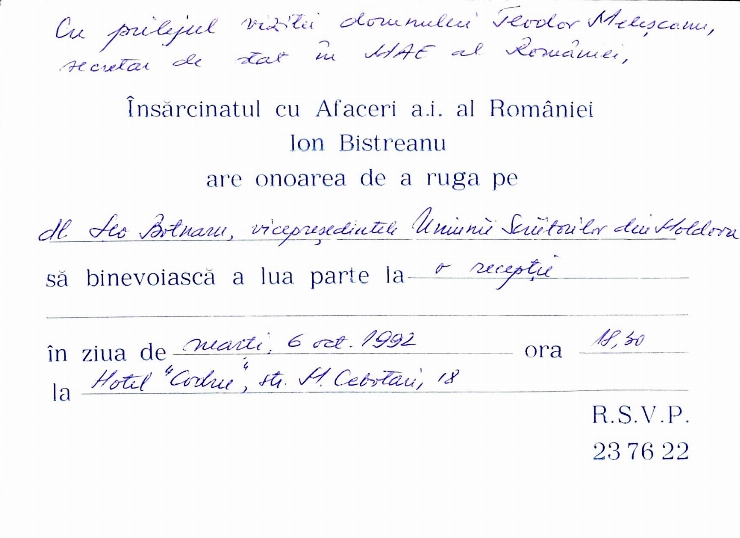 Cu prilejul vizitei domnului Teodor Meleşcanu,
secretar de stat în MAE al României,
Însărcinatul cu Afaceri a.i. al României
Ion Bistreanu
are onoarea de a ruga pe
dl. Leo Botnaru, vicepreşedintele Uniunii Scriitorilor din Moldova
să binevoiască a lua parte la o recepţie
în ziua de marti, 6 oct. 1992 ora 18,30
la Hotel "Codru", str. M. Cebotari, 18
R.S.V.P.
23 76 22